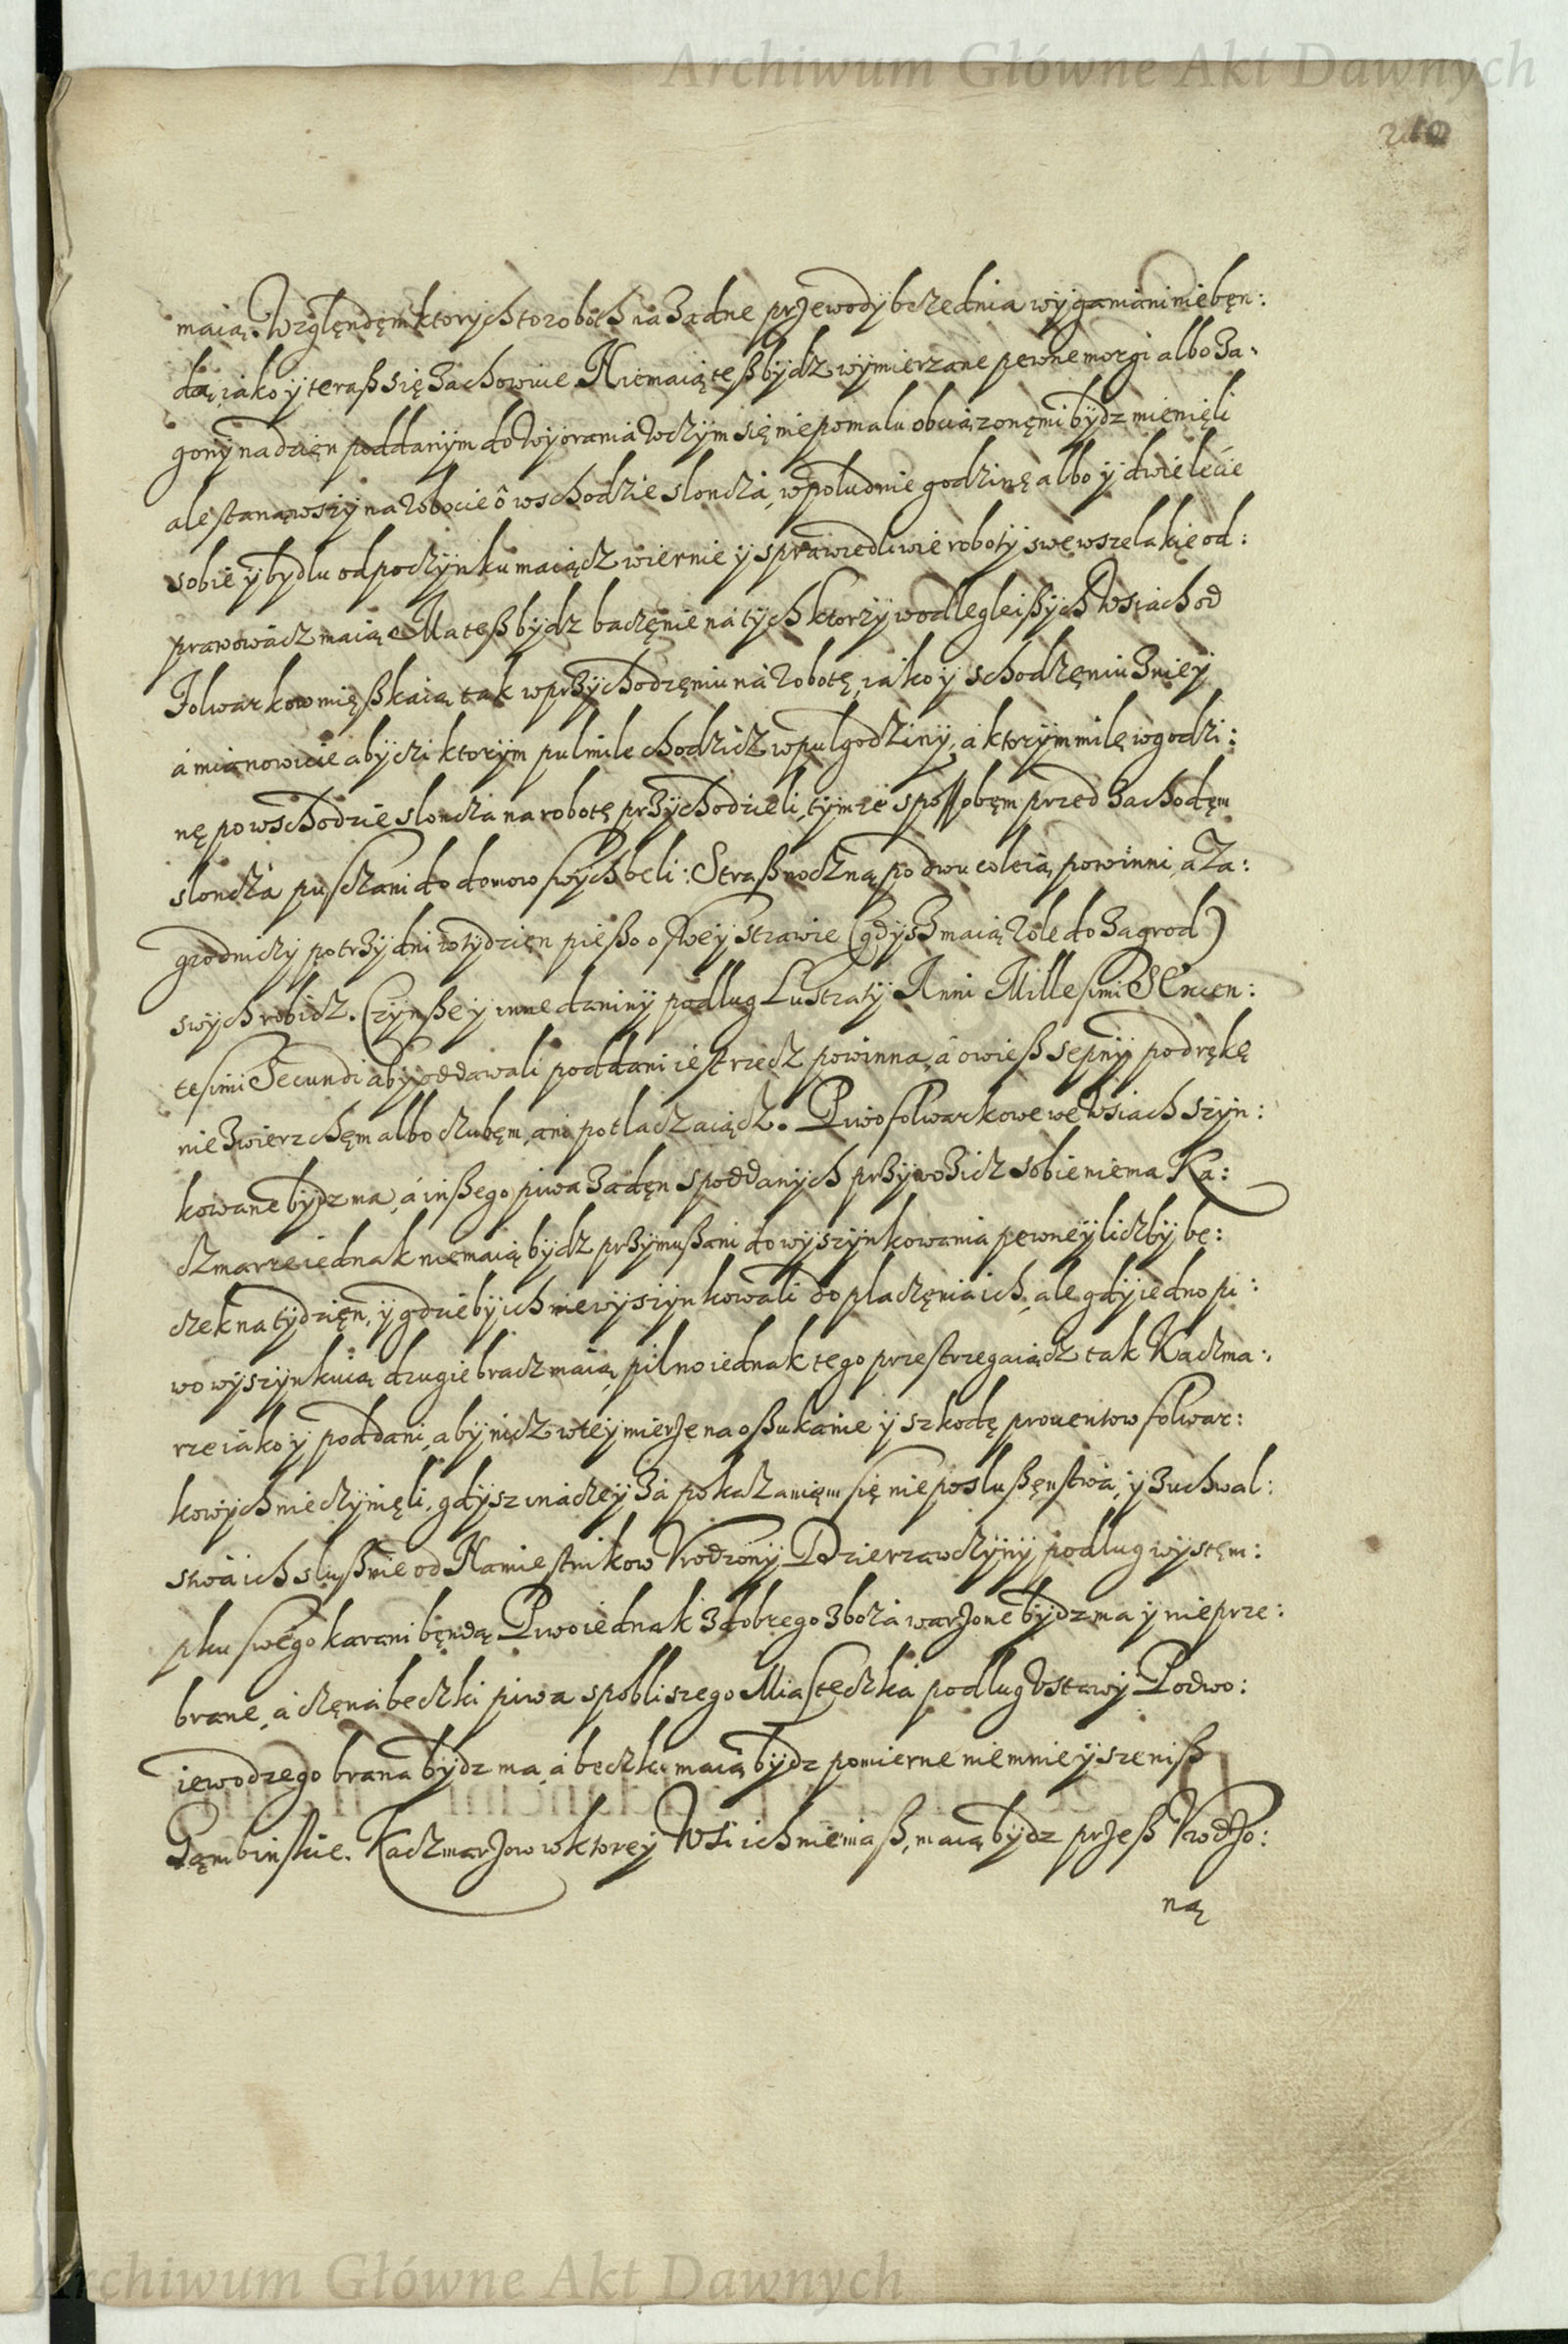 Archiwum Główne Akt Dawnych
maią. Względęm ktorych to robot na żadne przewody bez ednia wyganiani niebęn:
dą, iako y teraß się zachowuie. Niemaią teß bydz wymierzane pewne morgi albo za:
gony na dzięn poddanym do wyorania wczym się niepomalu obciązonęmi bydz mienięli
ale stanąwszy na robocie o wschodzie sloncza, w poludnie godzinę albo y dwie lecie
sobie y bydlu odpoczynku maiącz wiernie y sprawiedliwie roboty swe wszelakie od:
prawowacz maią. Ma teß bydz baczęnie na tych ktorzy w odlegleißych Wsiach od
Folwarkow mięßkaią tak w przychodzęniu na robotę, iako y schodzęniu z niey
a mianowicie aby czi ktorym pulmile chodzicz w pul godziny, a ktorym milę w godzi:
nę po wschodzie sloncza na robotę przychodzieli, tymze sposobęm przed zachodęm
sloncza pusczani do domow swych beli: Straß noczną po dwu coleią powinni, a Za:
grodniczy po trzy dni w tydzięn pießo o swey strawie (gdyß maią role do zagrod)
swych robicz. Czynße y inne daniny podlug Lustraty Anni Millesimi Sexcen:
tesimi Secundi aby oddawali poddani iest rzecz powinna, a owieß sepny pod rękę
nie z wierzchęm albo czubęm, ani potlaczaiącz. Piwo folwarkowe we Wsiach szyn:
kowane bydz ma, a inßego piwa zadęn s poddanych przywozicz sobie niema Ka:
czmarze iednak niemaią bydz przymußani do wyszynkowania pewney liczby be:
czek na tydzięn, y gdzieby ich niewyszynkowali do placzęnia ich, ale gdy iedno pi:
wo wyszynkuią drugie bracz maią, pilno iednak tego przestrzegaiącz tak Kaczma:
rze iako y poddani, aby nicz w tey mierze na oßukanie y szkodę prouentow folwar:
kowych nieczynięli, gdysz inaczey za pokazanięm się nieposlußęnstwa, y zuchwal:
stwa ich slußnie od Namiestnikow Vrodzony Dzierzawczyny podlug występ:
pku swego karani będą. Piwo iednak z dobrego zboza warzone bydz ma y nieprze:
brane, a częna beczki piwa s pobliszego Miasteczka podlug Vstawy Podwo:
iewodzego brana bydz ma, a beczki maią bydz pomierne niemnieysze niß
Gąmbinskie. Kaczmarzow w ktorey Wsi ich niemaß, maią bydz przeß Vrodzo:
ną
Archiwum Główne Akt Dawnych